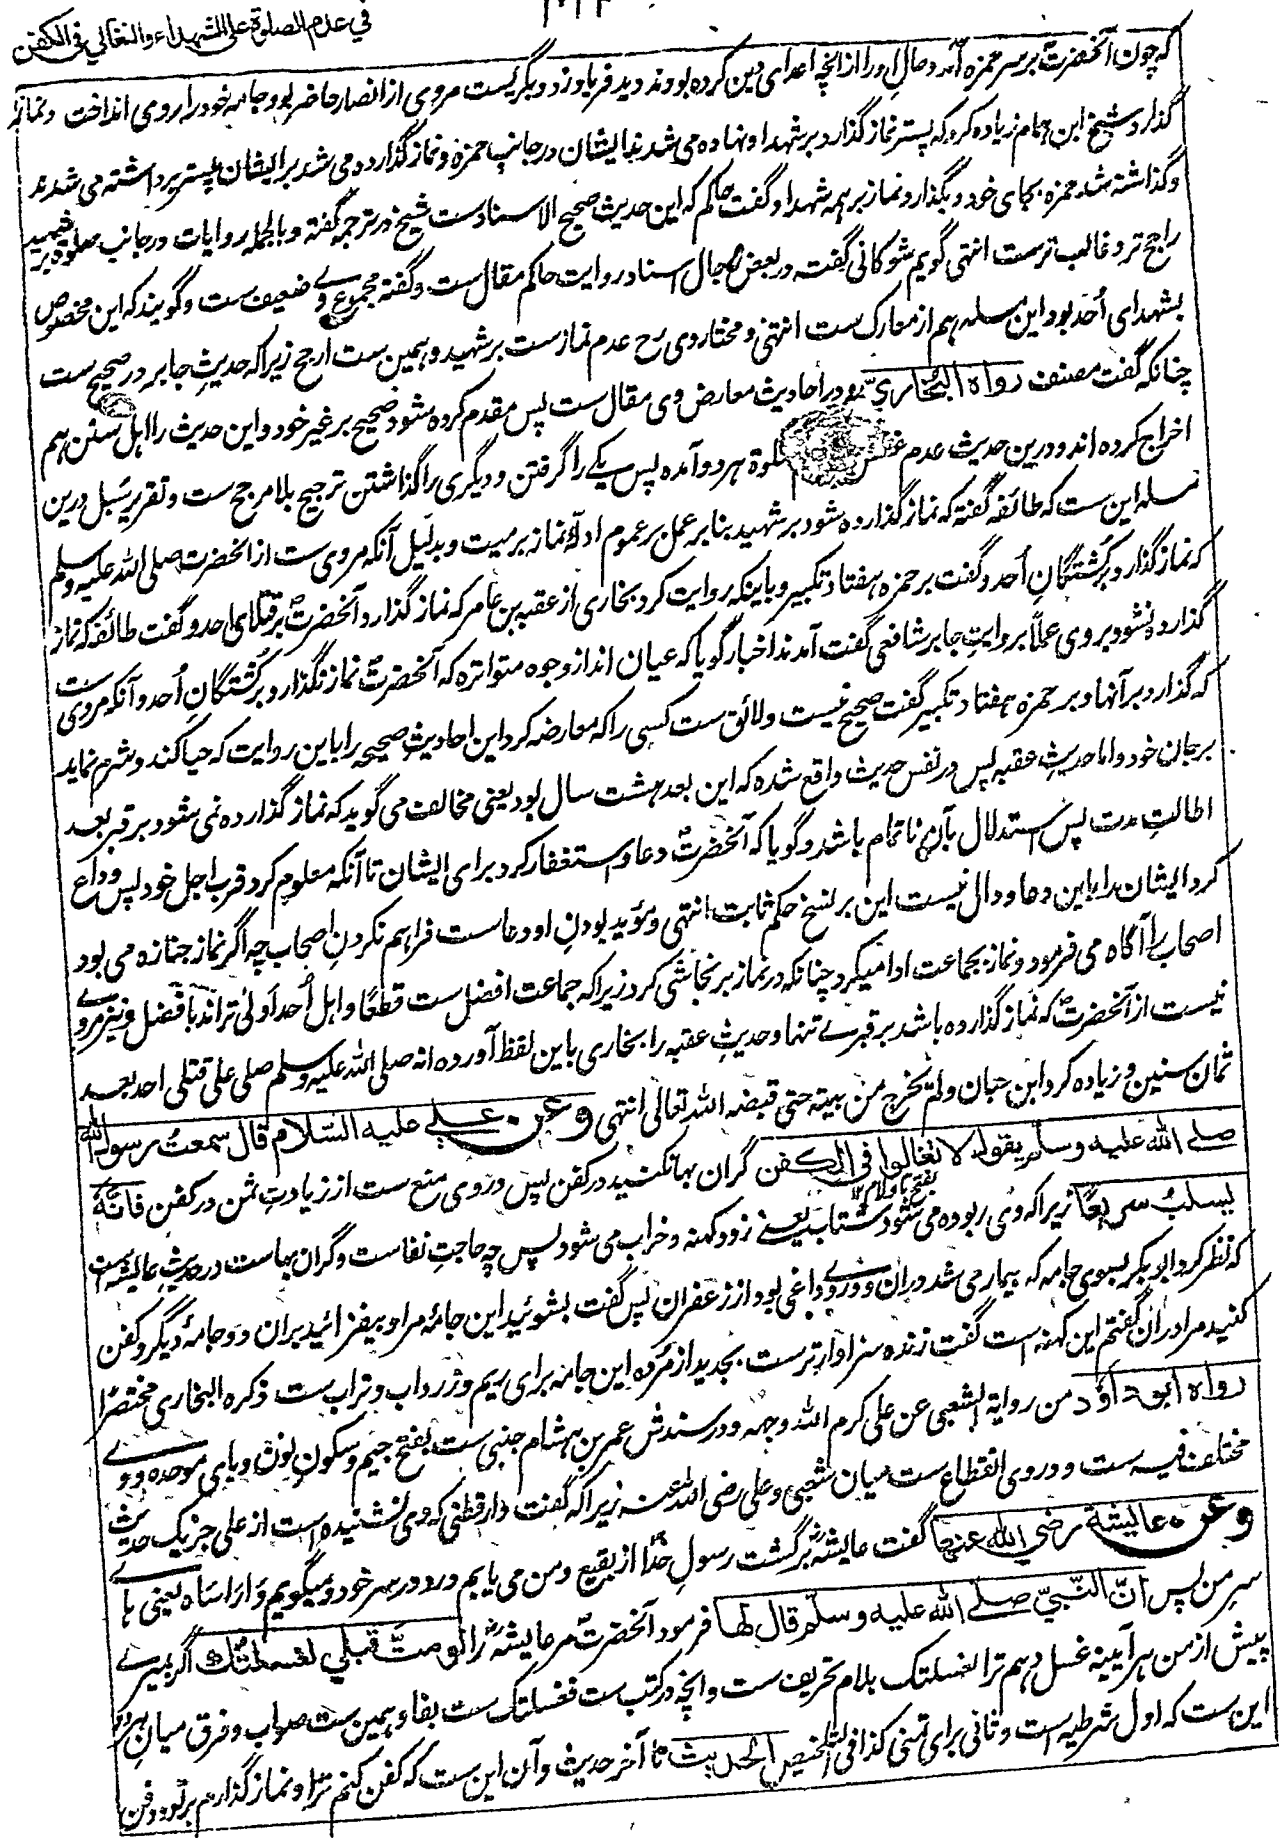 في عدم الصلوة على الشهداء والتغالي في الكفن
که چون آنحضرت بر سر حمزه آمد و حال او را از آنچه اعدای دین کرده بودند دید فریاد زد و بگریست مروی از انصار حاضر بود جامه خود را بروی انداخت و نماز
گذارد شیخ ابن همام زیاده کرد که پستر نماز گذارد بر شهدا و نهاده می شدند ایشان در جانب حمزه و نماز گذارده می شد بر ایشان پستر برداشته می شدند
و گذاشته شد حمزه بجای خود و بگذارد نماز بر همه شهدا و گفت حاکم که این حدیث صحیح الاسناد ست شیخ در ترجمه گفته و بالجمله روایات در جانب صلوة بر شهید
راجح تر و غالب تر ست انتهی گویم شوکانی گفته در بعض رجال اسناد روایت حاکم مقال ست و گفته مجموع وی ضعیف ست و گویند که این مخصوص
بشهدای اُحد بود این مسله هم از معارک ست انتهی و مختار وی رح عدم نماز ست بر شهید و همین ست ارجح زیرا که حدیثِ جابر در صحیح ست
چنانکه گفت مصنف رواه البخاري و در احادیث معارض وی مقال ست پس مقدم کرده شود صحیح بر غیر خود و این حدیث را اهل سنن هم
اخراج کرده اند و درین حدیث عدم صلوة هر دو آمده پس یکی را گرفتن و دیگری را گذاشتن ترجیح بلا مرجح ست و تقریر سبل درین
مسله این ست که طائفه گفته که نماز گذارده شود بر شهید بنابر عمل بر عموم ادلهٔ نماز بر میت و بدلیل آنکه مروی ست از آنحضرت صلی الله علیه وسلم
که نماز گذارد بر کُشتگانِ اُحد و گفت بر حمزه هفتاد تکبیر و باینکه روایت کرد بخاری از عقبه بن عامر که نماز گذارد آنحضرت بر قتلای احد و گفت طائفه که نماز
گذارده نشود بر وی عملاً بروایتِ جابر شافعی گفت آمدند اخبار گویا که عیان اند از وجوه متواتره که آنحضرت نماز نگذارد بر کُشتگانِ اُحد و آنکه مروی ست
که گذارد بر آنها و بر حمزه هفتاد تکبیر گفت صحیح نیست و لائق ست کسی را که معارضه کرد این احادیثِ صحیحه را باین روایت که حیا کند و شرم نماید
بر جان خود و اما حدیثِ عقبه پس در نفس حدیث واقع شده که این بعد هشت سال بود یعنی مخالف می گوید که نماز گذارده نمی شود بر قبر بعد
اطالتِ مدت پس استدلال بآن ناتمام باشد و گویا که آنحضرت دعا و استغفار کرد برای ایشان تا آنکه معلوم کرد قرب اجل خود پس وداع
کرد ایشان را باین دعا و دال نیست این بر نسخ حکم ثابت انتهی و مؤید بودنِ او دعاست فراهم نکردنِ اصحاب چه اگر نماز جنازه می بود
اصحاب را آگاه می فرمود و نماز بجماعت ادا میکرد چنانکه در نماز بر نجاشی کرد زیرا که جماعت افضل ست قطعًا و اهل اُحد اولیٰ تر اند بافضل و نیز مروی
نیست از آنحضرت که نماز گذارده باشد بر قبری تنها و حدیثِ عقبه را بخاری باین لفظ آورده انه صلی الله علیه وسلم صلی علی قتلی احد بعد
ثمان سنین و زیاده کرد ابن حبان ولم یخرج من بیته حتی قبضه الله تعالی انتهی وعن علي عليه السلام قال سمعت رسول الله
صلى الله عليه وسلم يقول لا تغالوا في الكفن گران بها نکنید در کفن پس در وی منع ست از زیادتِ ثمن در کفن فانه
يسلب سريعًا زیرا که وی ربوده می شود شتاب یعنی زود کهنه و خراب می شود پس چه حاجتِ نفاست و گران بهاست در حدیثِ عایشه است
که نظر کرد ابوبکر بسوی جامه که بیمار می شد دران و در وی داغی بود از زعفران پس گفت بشوئید این جامهٔ مرا و بیفزائید بران دو جامهٔ دیگر و کفن
کنید مرا دران گفتم این کهنه است گفت زنده سزاوارتر ست بجدید از مرده این جامه برای ریم و زرداب و تراب ست ذکره البخاری مختصرًا
رواه ابو داؤد من روایة الشعبی عن علی کرم الله وجهه و در سندش عمر بن هشام جنبی ست بفتح جیم و سکونِ نون و بای موحده و وی
مختلف فیه ست و در وی انقطاع ست میان شعبی و علی رضی الله عنه زیرا که گفت دارقطنی که وی نشنیده است از علی جز یک حدیث
وعن عايشة رضي الله عنها گفت عایشه برگشت رسولِ خدا از بقیع و من می یابم درد در سر خود و میگویم وَارَاسَاه یعنی های
سرِ من پس ان النبي صلى الله عليه وسلم قال لها فرمود آنحضرت مر عایشه را لو مت قبلي لغسلتك اگر بمیری
پیش از من هر آیینه غسل دهم ترا لغسلتک بلام تحریف ست و آنچه در کتب ست فغسلتک ست بفا و همین ست صواب و فرق میانِ هر دو
این ست که اول شرطیه است و ثانی برای تمنی کذا فی التلخیص الحديث تا آخر حدیث و آن این ست که کفن کنم ترا و نماز گذارم بر تو و دفن